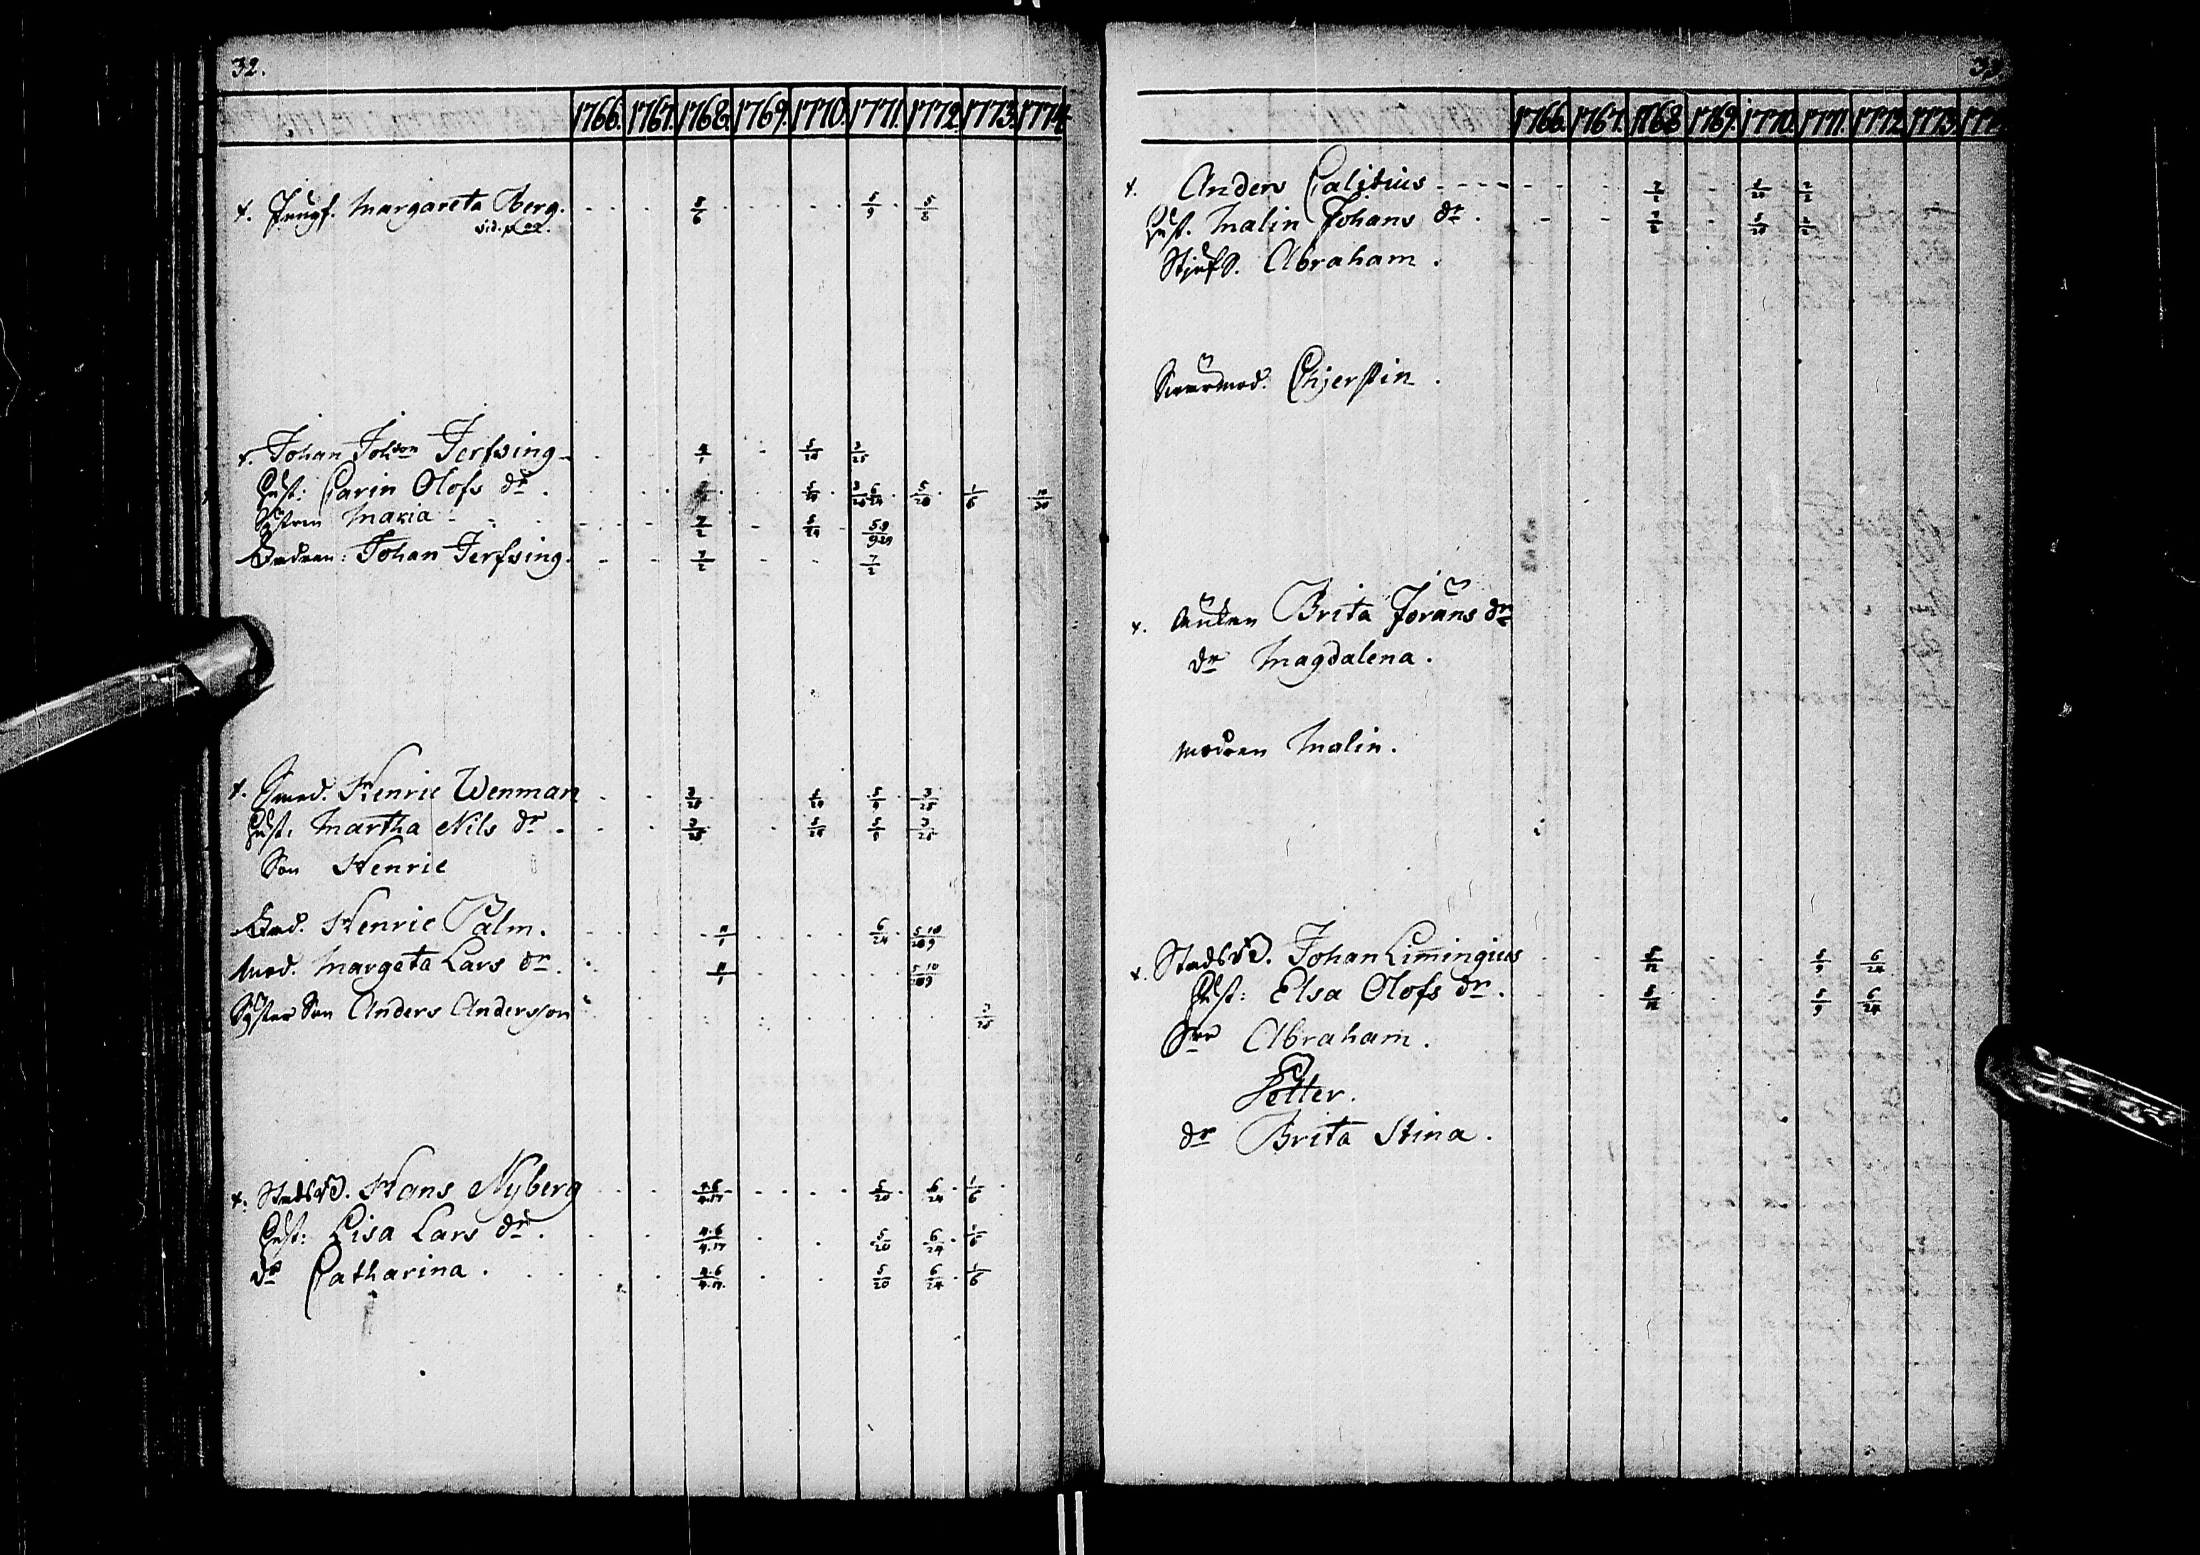 32.
1766. 1767. 1768. 1769. 1770. 1771. 1772. 1773. 1774.
+. Jungf. Margareta Berg. 5/6 5/9 5/8
+. Johan Johsson Jerfsing 4/1 5/29 3/25
Hust: Carin Olofs dr. 5/29 3/25 6/24 5/20 1/6 10/30
Systren Maria 7/2 5/29 5 9/9 29
Brodren: Johan Jerfsing 7/2 7/2
+. Smed. Henric Wenman 3/25 5/29 5/9 3/25
Hust: Martha Nils dr. 3/25 5/29 5/9 3/25
Son Henric
Brod. Henric Palm. 11/1 6/24 5 10/20 9
Mod. Margeta Lars dr. 11/1 5 10/20 9
Syster Son Anders Andersson 3/25
+. Stads Hans Nyberg 4.6/4.17 5/20 6/24 1/6
Hust: Lisa Lars dr. 4.6/4.17 5/20 6/24 1/6
dr Catharina. 4.6/4.17 5/20 6/24 1/6
33
1766. 1767. 1768 1769. 1770. 1771. 1772 1773. 177
+. Anders Calitius 7/2 5/29 7/2
Hust. Malin Johans dr. 7/2 5/29 7/2
Stjufs. Abraham.
Swermod: Chjerstin.
+. Enkan Brita Jorans dr
dr Magdalena.
Modren Malin.
+. Stads Johan Limingius 5/12 5/9 6/24
Hust: Elsa Olofs dr. 5/12 5/9 6/24
Son Abraham.
Petter.
dr Brita Stina.